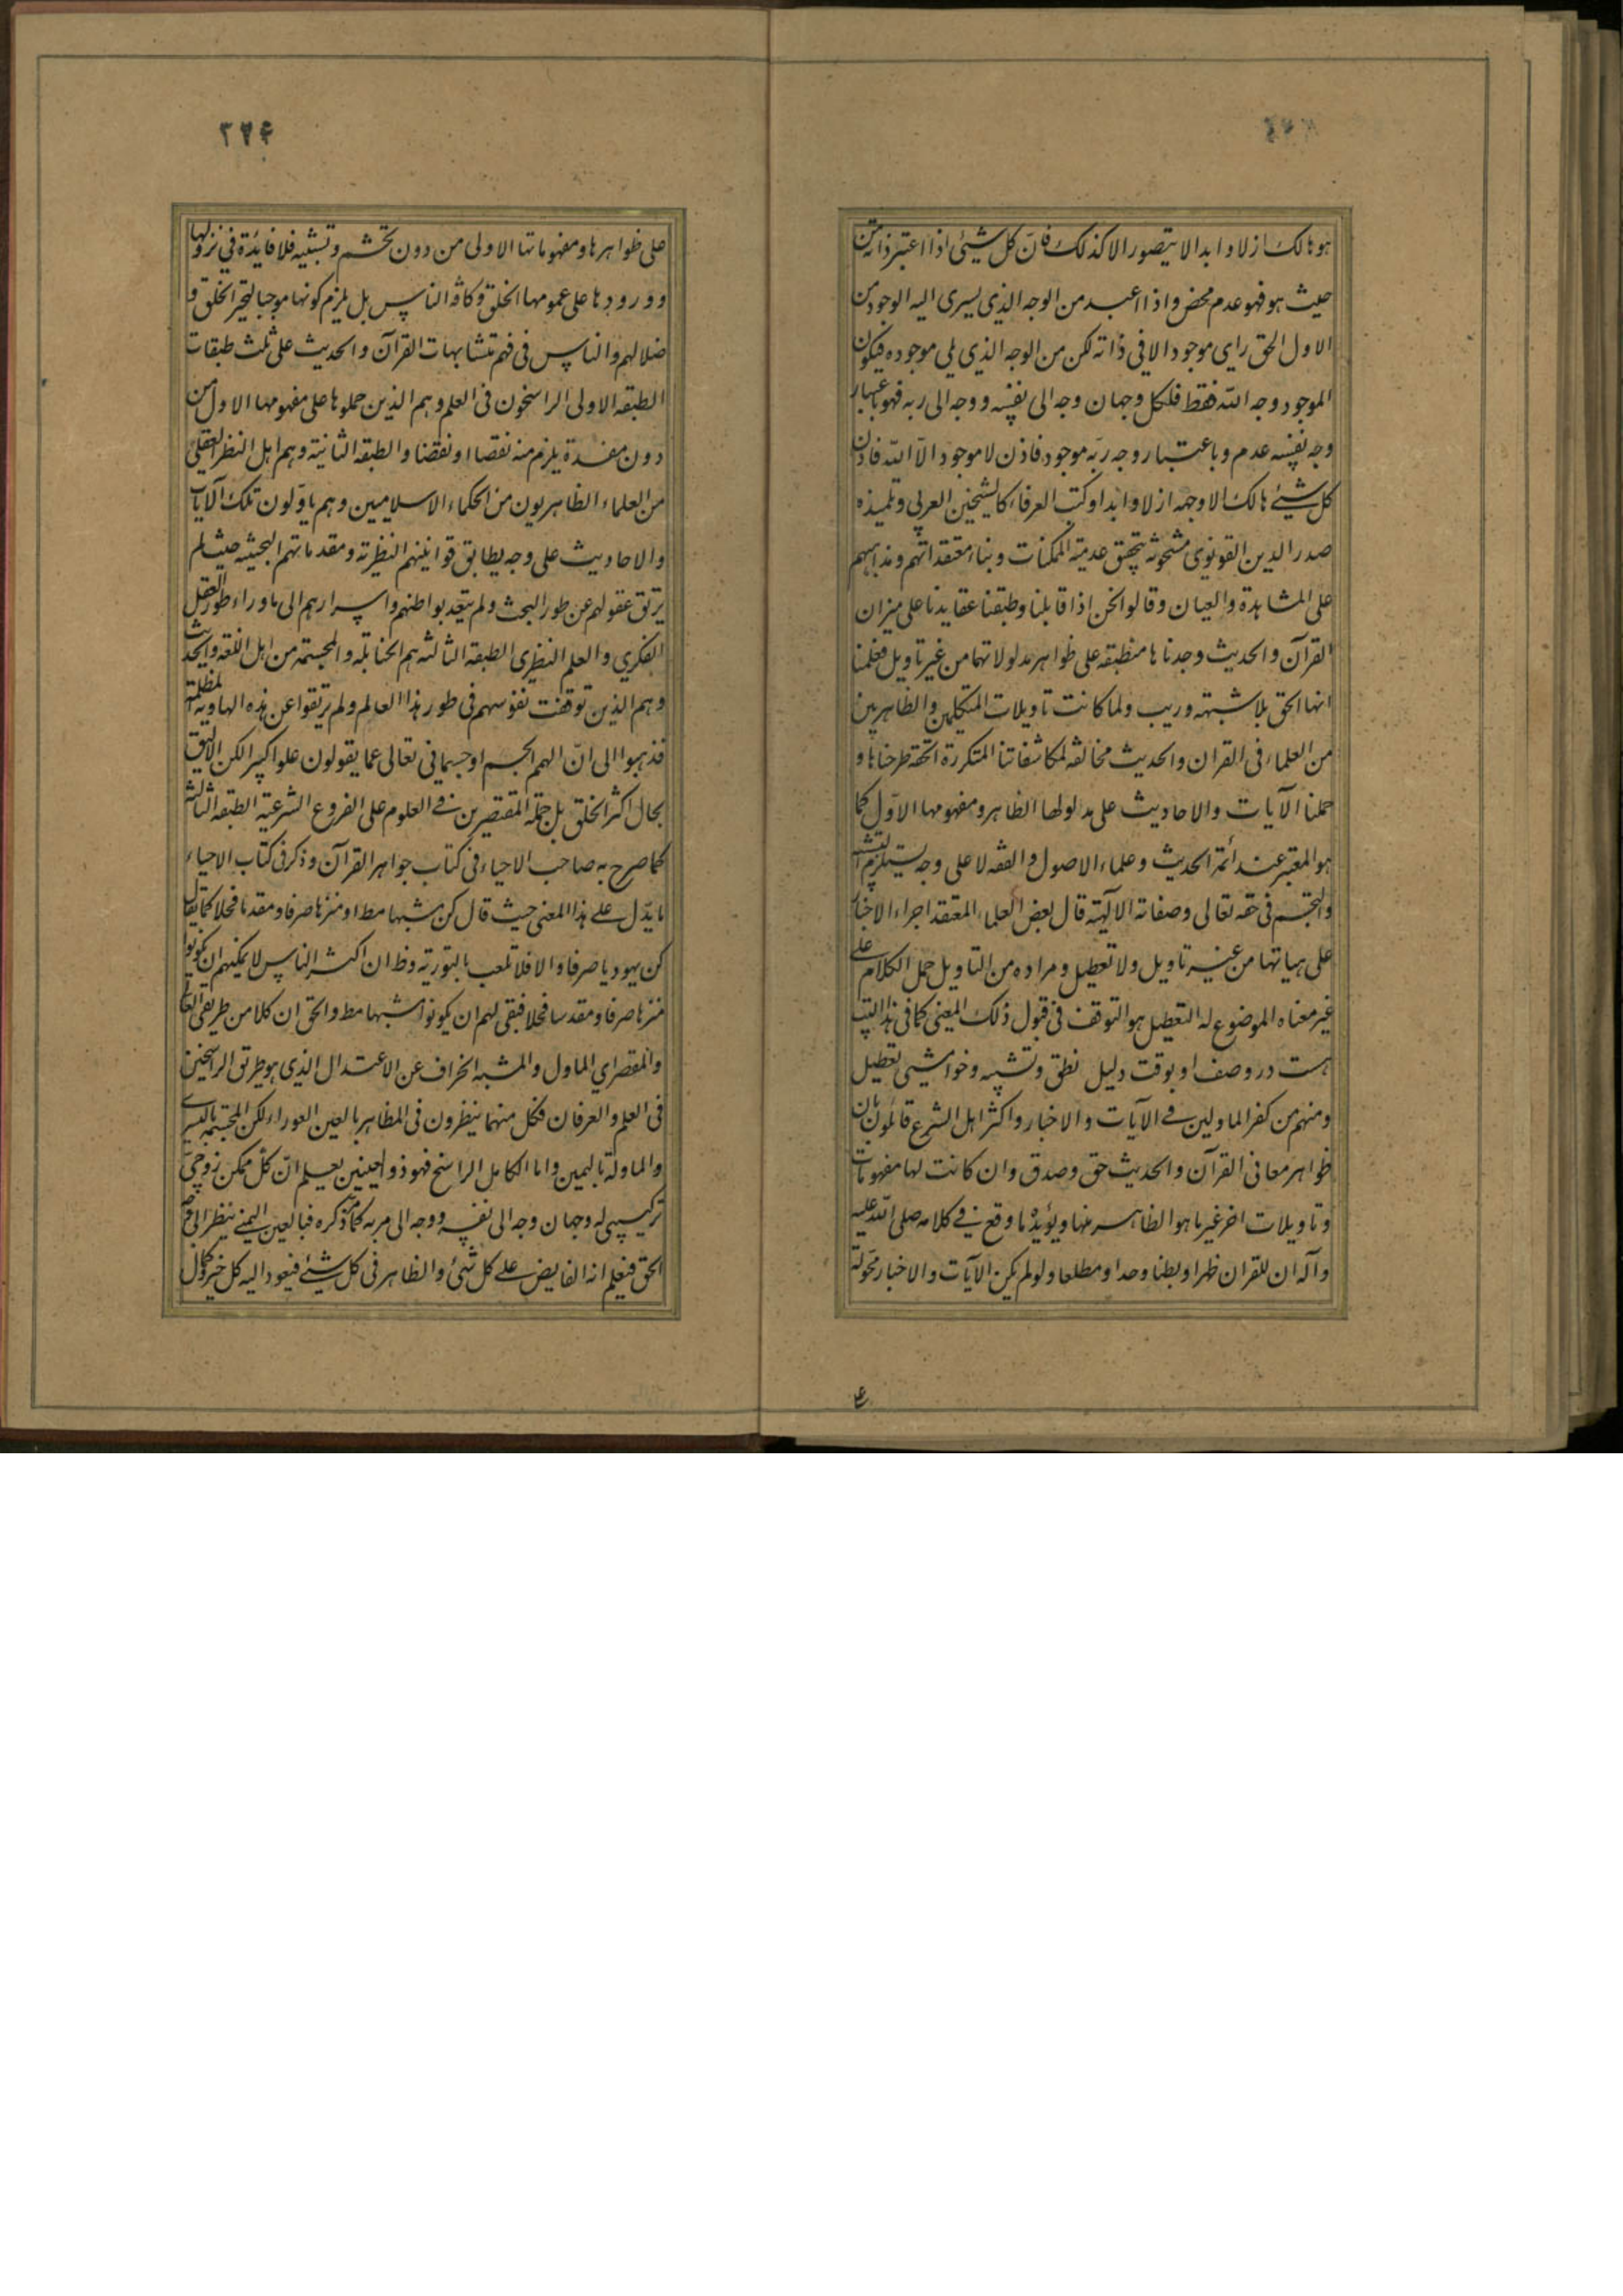 هو هالك ازلا و ابدا لا يتصور الا كذلك فان كل شيئ اذا اعتبر ذاته من
حيث هو فهو عدم محض و اذا اعتبر من الوجه الذي يسرى اليه الوجود من
الاول الحق راى موجودا لا في ذاته لكن من الوجه الذي يلي موجوده فيكون
الموجود وجه الله فقط فلكل وجهان وجه الى نفسه و وجه الى ربه فهو باعتبار
وجه نفسه عدم و باعتبار وجه ربه موجود فاذن لا موجود الا الله فاذن
كل شيئ هالك الا وجهه ازلا و ابدا و كتب العرفاء كالشيخين العربي و تلميذه
صدر الدين القونوي مشحونة بتحقق عدمية الممكنات و بناء معتقداتهم و مذاهبهم
على المشاهدة و العيان و قالوا نحن اذا قابلنا و طبقنا عقايدنا على ميزان
القرآن و الحديث وجدناها منطبقه على ظواهر مدلولاتهما من غير تاويل فعلمنا
انها الحق بلا شبهة و ريب و لما كانت تاويلات المتكلمين و الظاهريين
من العلماء في القران و الحديث مخالفه لمكاشفاتنا المتكررة الحقة طرحناها و
حملنا الآيات و الاحاديث على مدلولها الظاهر و مفهومها الاول كما
هو المعتبر عند ائمة الحديث و علماء الاصول و الفقه لا على وجه يستلزم التشبيه
و التجسم في حقه تعالى و صفاته الالهية قال بعض العلماء المعتقد اجراء الاخبار
على هياتها من غير تاويل و لا تعطيل و مراده من التاويل حمل الكلام على
غير معناه الموضوع له التعطيل هو التوقف في قبول ذلك المعنى كما في هذا البيت
هست در وصف او بوقت دليل نطق و تشبيه و خوامشى تعطيل
و منهم من كفر الماولين في الآيات و الاخبار و اكثر اهل الشرع قائلون بان
ظواهر معاني القرآن و الحديث حق و صدق و ان كانت لها مفهومات
و تاويلات اخر غير ما هو الظاهر منها و يؤيده ما وقع في كلامه صلى الله عليه
و آله ان للقران ظهرا و بطنا و حدا و مطلعا و لو لم يكن الآيات و الاخبار محمولة
ع
٣٢٤
على ظواهرها و مفهوماتها الاولى من دون تجسم و تشبيه فلا فايدة في نزولها
و ورودها على عموم الخلق و كافة الناس بل يلزم كونها موجبا لتحير الخلق و
ضلالهم و الناس في فهم متشابهات القرآن و الحديث على ثلث طبقات
الطبقه الاولى الراسخون في العلم و هم الذين حملوها على مفهومها الاول من
دون مفسدة يلزم منه نقصا او نقضا و الطبقه الثانية و هم اهل النظر العقلي
من العلماء الظاهريون من الحكماء الاسلاميين و هم ياولون تلك الآيات
و الاحاديث على وجه يطابق قوانينهم النظرية و مقدماتهم البحثيه حيث لم
يرتق عقولهم عن طور البحث و لم يتعد بواطنهم و اسرارهم الى ما وراء طور العقل
الفكري و العلم النظرى الطبقه الثالثه هم الحنابلة و المجسمة من اهل اللغه و الحديث
و هم الذين توقفت نفوسهم في طور هذا العالم و لم يرتقوا عن هذه الهاوية المظلمة
فذهبوا الى ان الههم جسم او جسماني تعالى عما يقولون علوا كبيرا لكن الاليق
بحال اكثر الخلق بل جملة المقتصرين في العلوم على الفروع الشرعية الطبقه الثالثة
كما صرح به صاحب الاحياء في كتاب جواهر القرآن و ذكر في كتاب الاحياء
ما يدل على هذا المعنى حيث قال كن مشبها مط او منزها صرفا و مقدسا فحلا كما يقال
كن يهوديا صرفا و الا فلا تلعب بالتورية و ظ ان اكثر الناس لا يمكنهم ان يكونوا
منزها صرفا و مقدسا فحلا فبقى لهم ان يكونوا مشبها مط و الحق ان كلا من طريقي الغالي
و المقصر اي الماول و المشبه انحراف عن الاعتدال الذي هو طريق الراسخين
في العلم و العرفان فكل منهما ينظرون في المظاهر بالعين العوراء لكن المجسمة باليسرى
و الماولة باليمين و اما الكامل الراسخ فهو ذو العينين يعلم ان كل ممكن زوج
تركيبى له وجهان وجه الى نفسه و وجه الى ربه كما مر ذكره فبالعين اليمنى ينظر الى وجه
الحق فيعلم انه الفايض على كل شيئ و الظاهر في كل شيئ فيعود اليه كل خير و كمال